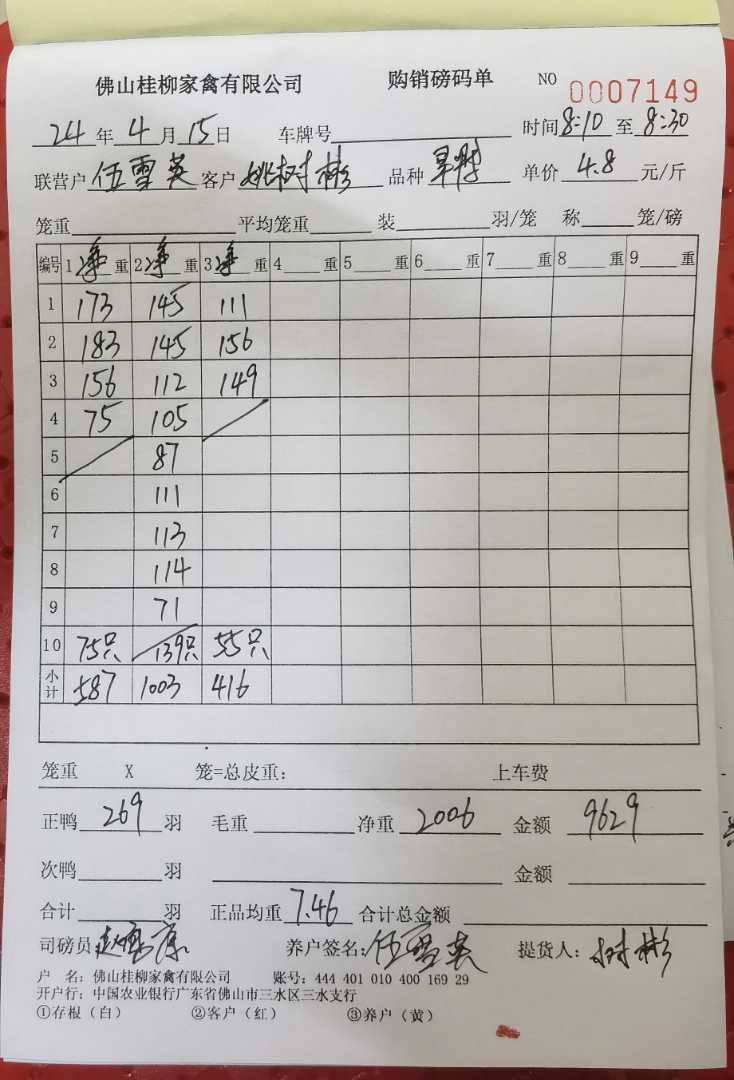 佛山桂柳家禽有限公司 购销磅码单 NO 0007149
24年4月15日 车牌号 时间8:10至8:30
联营户伍雪英客户姚树彬 品种 单价4.8元/斤
笼重 平均笼重 装 羽/笼 称 笼/磅
编号 1净重 2净重 3净重 4 重 5 重 6 重 7 重 8 重 9 重
1 173 145 111
2 183 145 156
3 156 112 149
4 75 105
5 87
6 111
7 113
8 114
9 71
10 75只 139只 55只
小计 587 1003 416
笼重 X 笼=总皮重: 上车费
正鸭269羽 毛重 净重2006 金额9629
次鸭 羽 金额
合计 羽 正品均重7.46 合计总金额
司磅员 养户签名:伍雪英 提货人:树彬
户 名: 佛山桂柳家禽有限公司 账号: 444 401 010 400 169 29
开户行: 中国农业银行广东省佛山市三水区三水支行
①存根(白) ②客户(红) ③养户(黄)